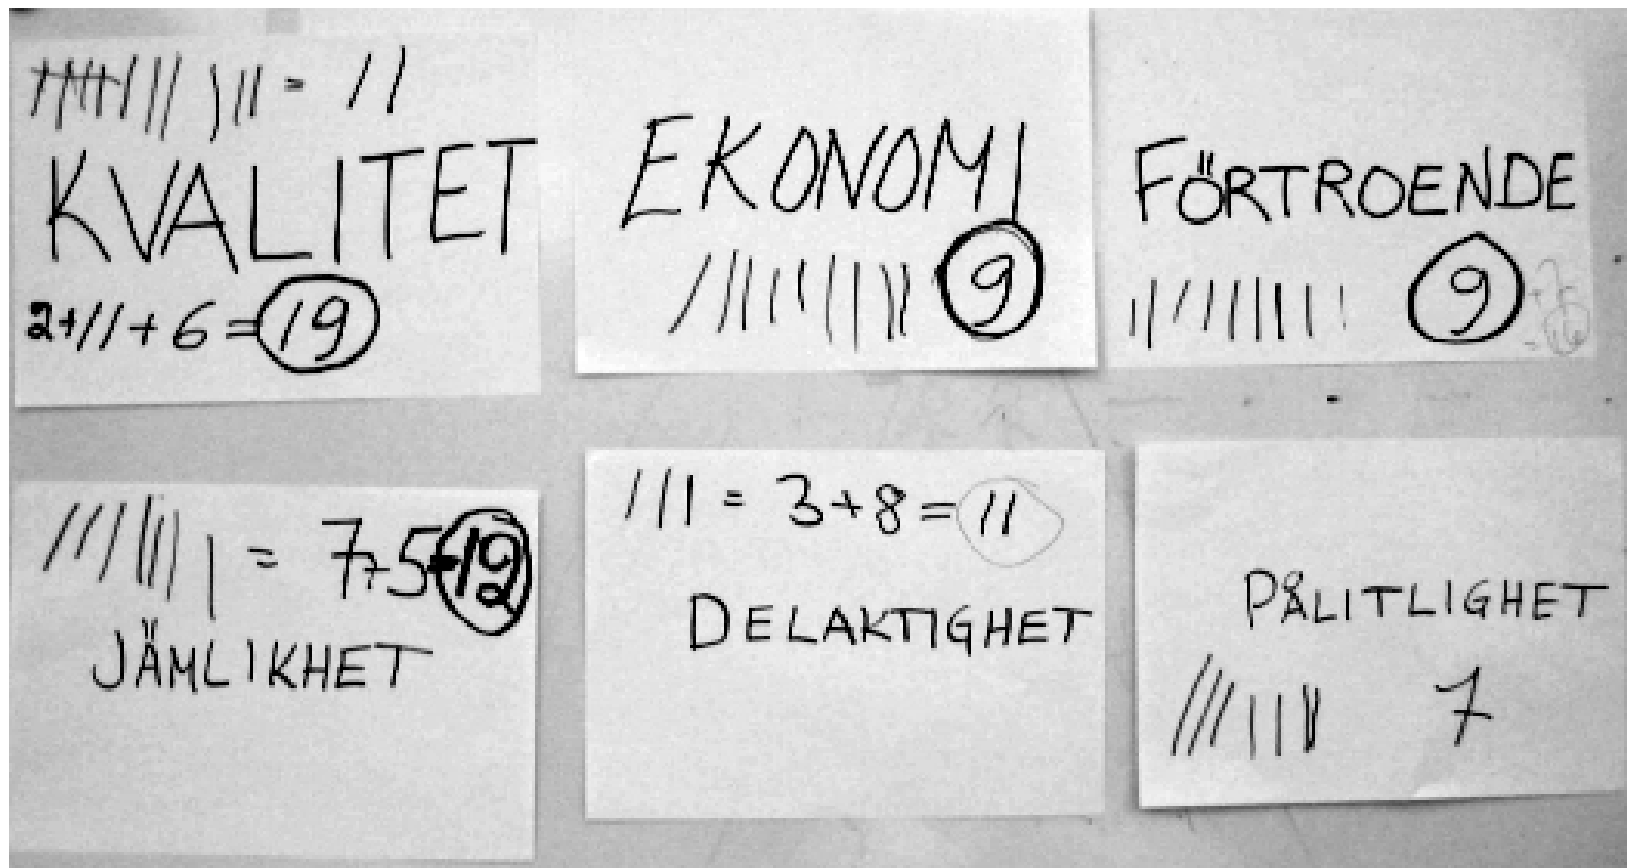 = 11
KVALITET
2+11+6=19
EKONOMI
9
FÖRTROENDE
9
= 7+5=12
JÄMLIKHET
= 3+8=11
DELAKTIGHET
PÅLITLIGHET
7